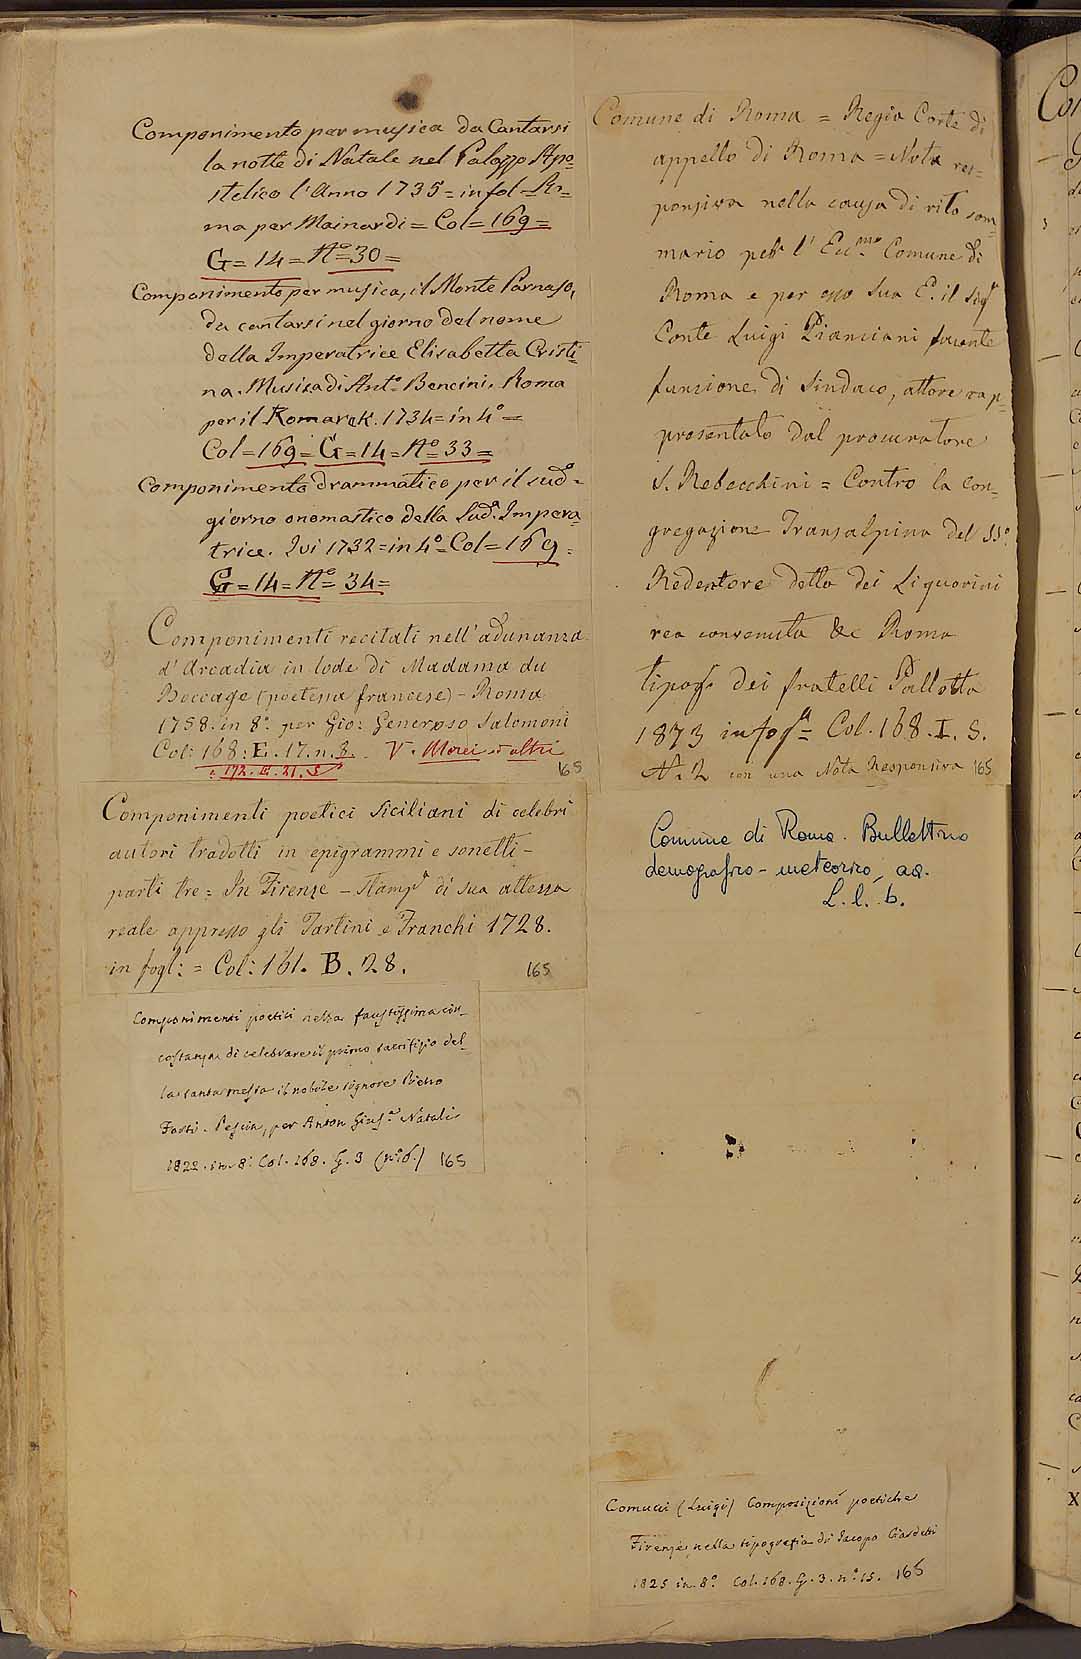 Componimento per musica da Cantarsi
la notte di Natale nel Palazzo Apo=
stolico l'Anno 1735 = in fol = Ro=
ma per Mainardi = Col = 169 =
G = 14 = Nº = 30 =
Componimento per musica, il Monte Parnaso,
da cantarsi nel giorno del nome
della Imperatrice Elisabetta Cristi=
na. Musica di Antº Bencini. Roma
per il Komarek. 1734 = in 4º =
Col = 169 = G = 14 = Nº = 33 =
Componimento drammatico per il sudº =
giorno onomastico della Sudª Impera=
trice. Ivi 1732 = in 4º = Col = 169 =
G = 14 = Nº = 34 =
Componimenti recitati nell'adunanza
d'Arcadia in lode di Madama du
Boccage (poetessa francese) - Roma
1758. in 8º per Gio: Generoso Salomoni
Col: 168: E. 17. n. 3. V. Morei e altri
: 172. E. 21. 5 165
Componimenti poetici siciliani di celebri
autori tradotti in epigrammi e sonetti -
parti tre = In Firenze - Stampª di sua altezza
reale appresso gli Tartini e Franchi 1728.
in fogl: = Col: 161. B. 28. 165
Componimenti poetici nella faustissima cir-
costanza di celebrare il primo sacrifizio del-
la santa messa il nobile signore Pietro
Forti. Pescia, per Anton Giusª Natali
1822. in 8º Col. 168. G. 3 (nº 6.) 165
Comune di Roma = Regia Corte di
appello di Roma = Nota res=
ponsiva nella causa di rito som
mario per l'Eccmo Comune di
Roma e per esso Sua E. il Sigr
Conte Luigi Pianciani facente
funzione di Sindaco, attore rap=
presentato dal procuratore
S. Rebecchini = Contro la Con=
gregazione Transalpina del SSº
Redentore detta dei Liquorini
rea convenuta &c Roma
tipogr. dei fratelli Pallotta
1873 in fogl = Col. 168. I. S.
Nº 2 con una Nota Responsiva 165
Comune di Roma. Bullettino
demografico-meteorico, ac.
L. l. b.
Comucci (Luigi) Composizioni poetiche
Firenze, nella tipografia di Jacopo Ciardetti
1825 in 8º Col. 168. G. 3. nº 15. 165